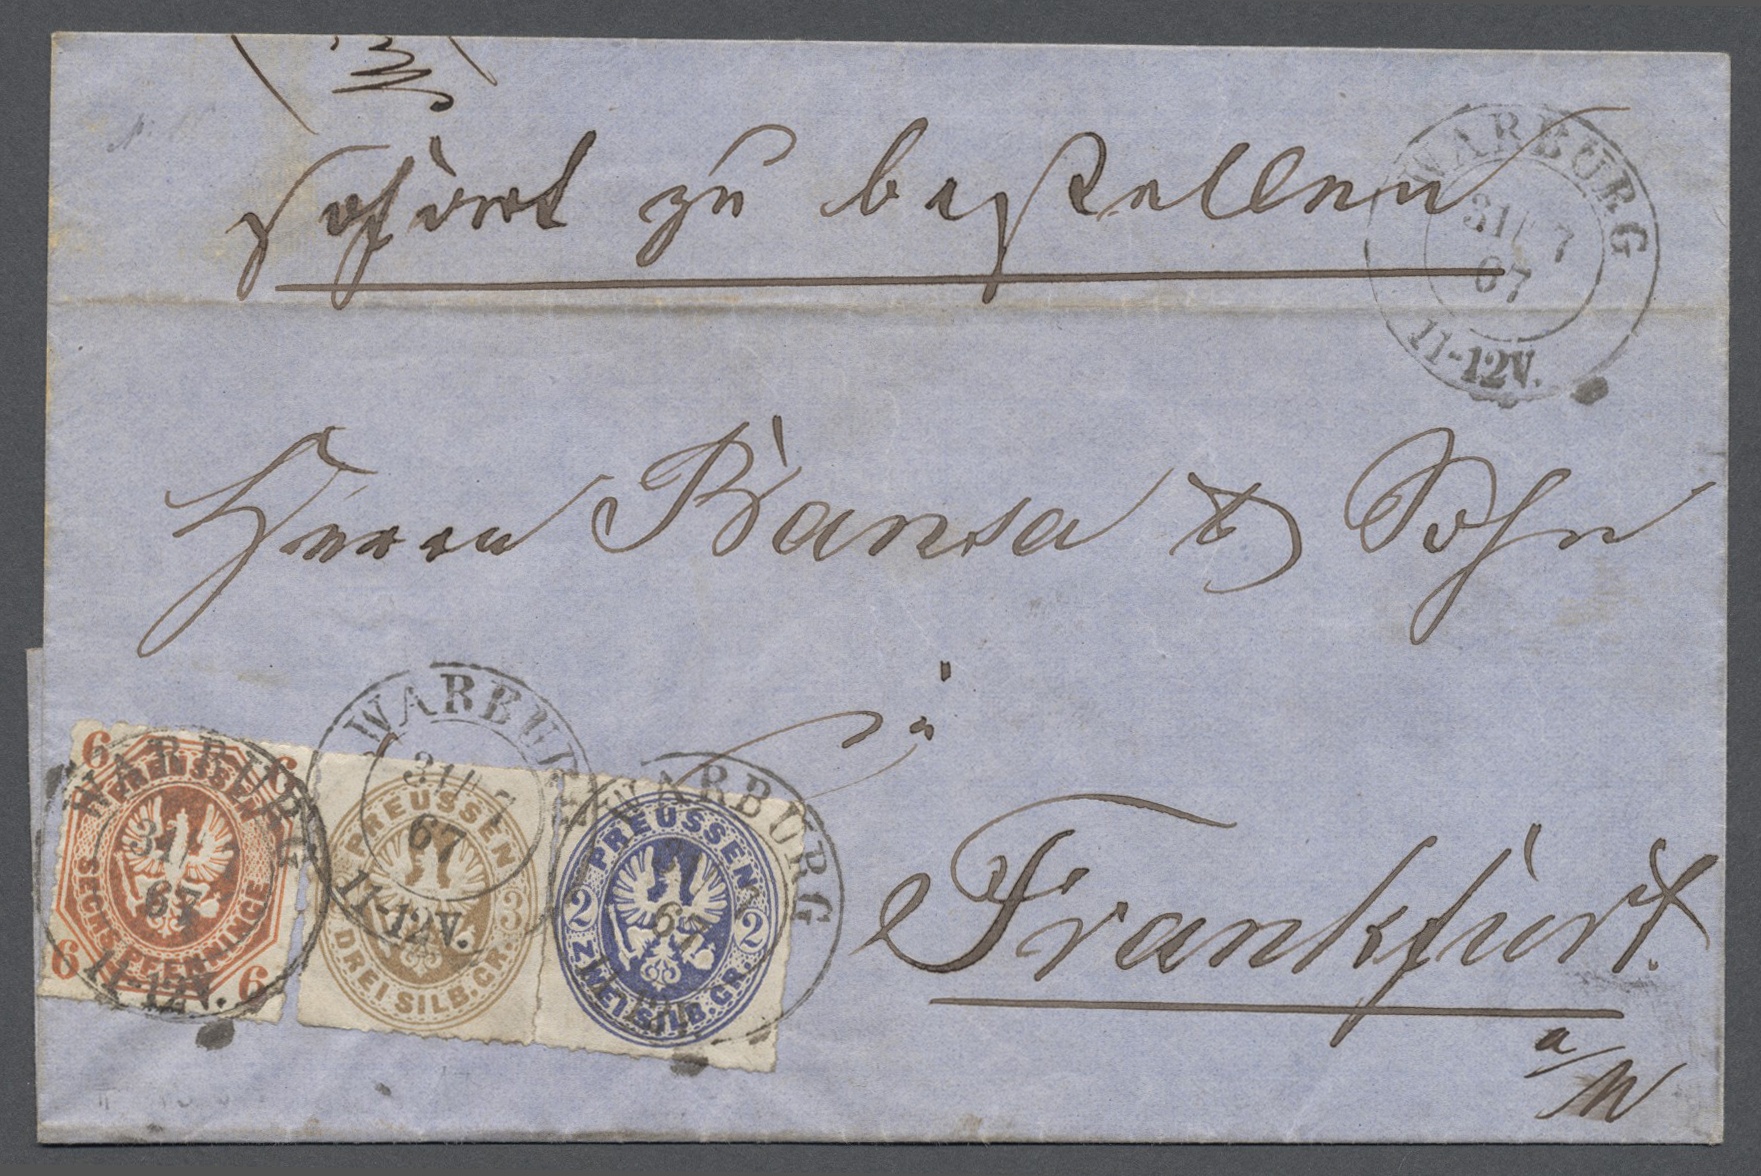 sofort zu bestellen
WARBURG
31 7
67
11-12V.
Herrn Bansa & Sohn
WARBURG
31 7
67
11-12V.
6 6
PREUSSEN
SECHS PFENNINGE
6 6
WARBURG
31 7
67
11-12V.
PREUSSEN
3
DREI SILB. GR.
WARBURG
67
PREUSSEN
2 2
ZWEI SILB. GR.
Frankfurt
a/M